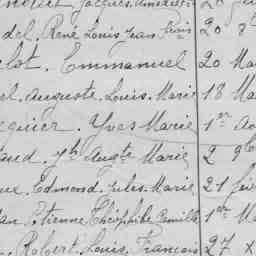 Jacques
del. René Louis Jean trois 20
lot. Emmanuel 20 Ma
el. Auguste. Louis. Marie 18 Ma
equier. Yves Marie 1er
aud. Jh Augte Marie 2 9b
Edmond. Jules. Marie 21 fév
Etienne Théophile Camille 1er Ma
Robert. Louis. François 27